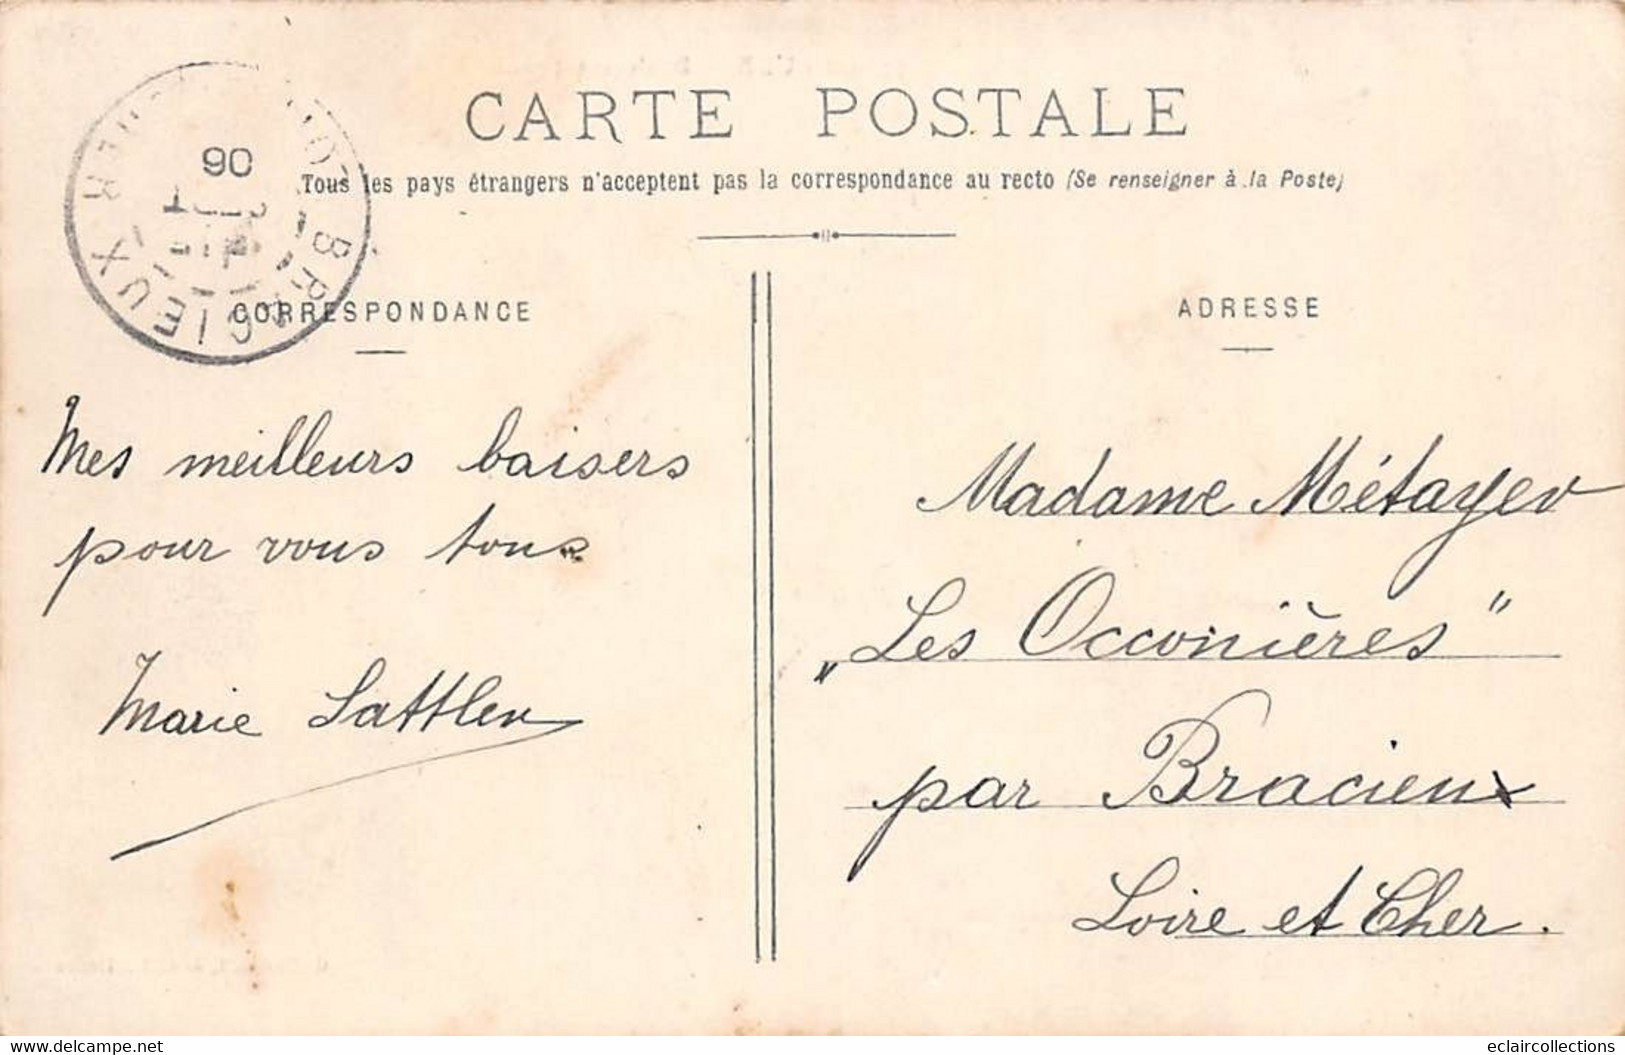 CARTE POSTALE
Tous les pays étrangers n'acceptent pas la correspondance au recto (Se renseigner à la Poste)
BRACIEUX
06
CORRESPONDANCE
Mes meilleurs baisers
pour vous tous
Marie Sattler
ADRESSE
Madame Métayer
"Les Occonières"
par Bracieux
Loire et Cher.
www.delcampe.net
eclaircollections